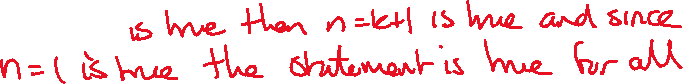 is true then n=k+1 is true and since
n=1 is true the statement is true for all